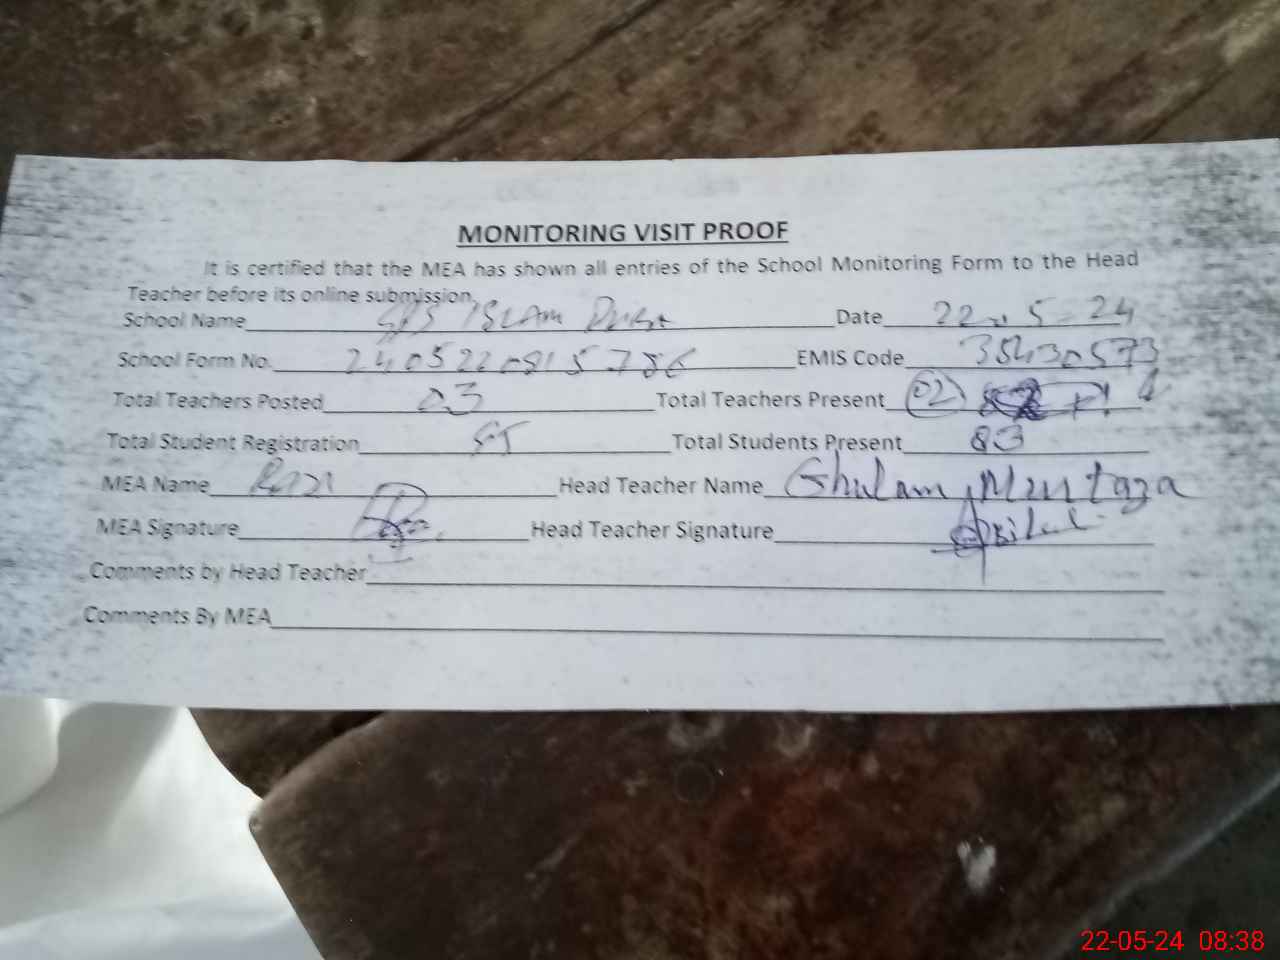 MONITORING VISIT PROOF
It is certified that the MEA has shown all entries of the School Monitoring Form to the Head
Teacher before its online submission.
School Name Islam Date 22.5-24
School Form No. 2405220815786 EMIS Code 35430573
Total Teachers Posted 03 Total Teachers Present 02
Total Student Registration Total Students Present 83
MEA Name Head Teacher Name Ghulam Murtaza
MEA Signature Head Teacher Signature
Comments by Head Teacher
Comments By MEA
22-05-24 08:38